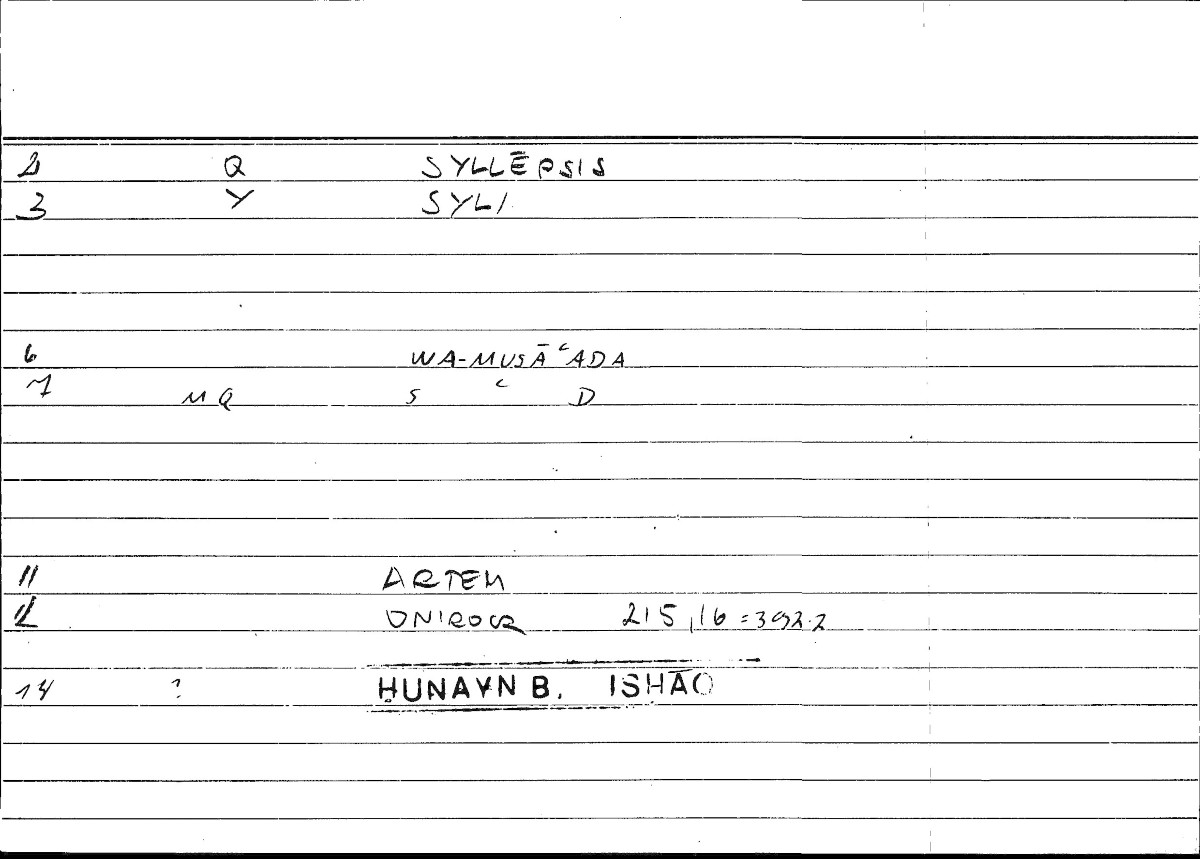 2 Q SYLLĒPSIS
3 Y SYL/
6 WA-MUSĀʿADA
7 MQ S ʿ D
11 ARTEM
12 ONIROCR 215,16=392.2
14 ? ḤUNAYN B. ISḤĀQ